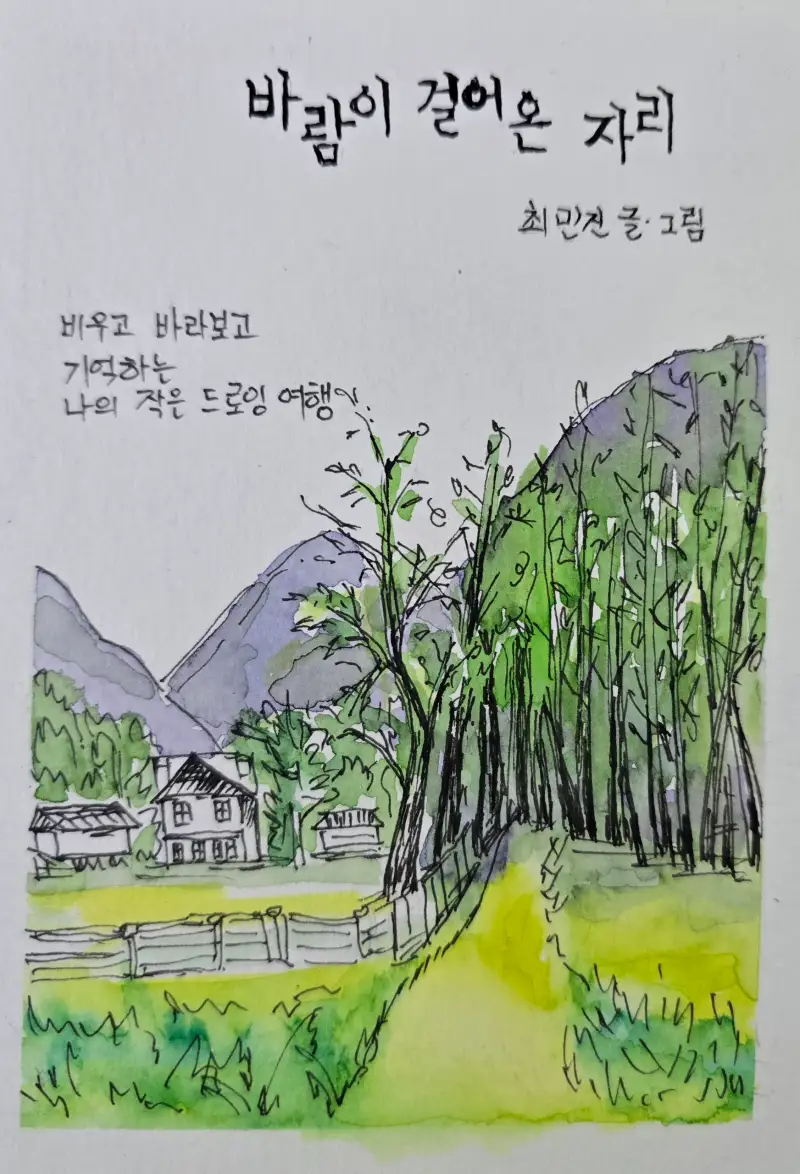 바람이 걸어온 자리
최민진 글·그림
비우고 바라보고
기억하는
나의 작은 드로잉 여행